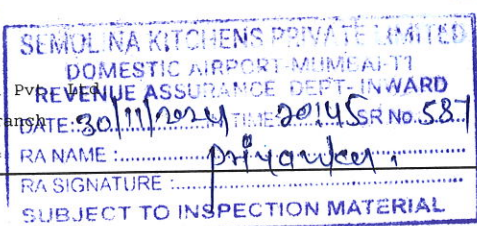 SEMOLINA KITCHENS PRIVATE LIMITED
DOMESTIC AIRPORT-MUMBAI-T1
Pvt. Ltd
REVENUE ASSURANCE DEPT- INWARD
ranch
DATE: 30/11/2024 TIME: 20:45 SR No. 587
RA NAME : Priyanka.
RA SIGNATURE :
SUBJECT TO INSPECTION MATERIAL